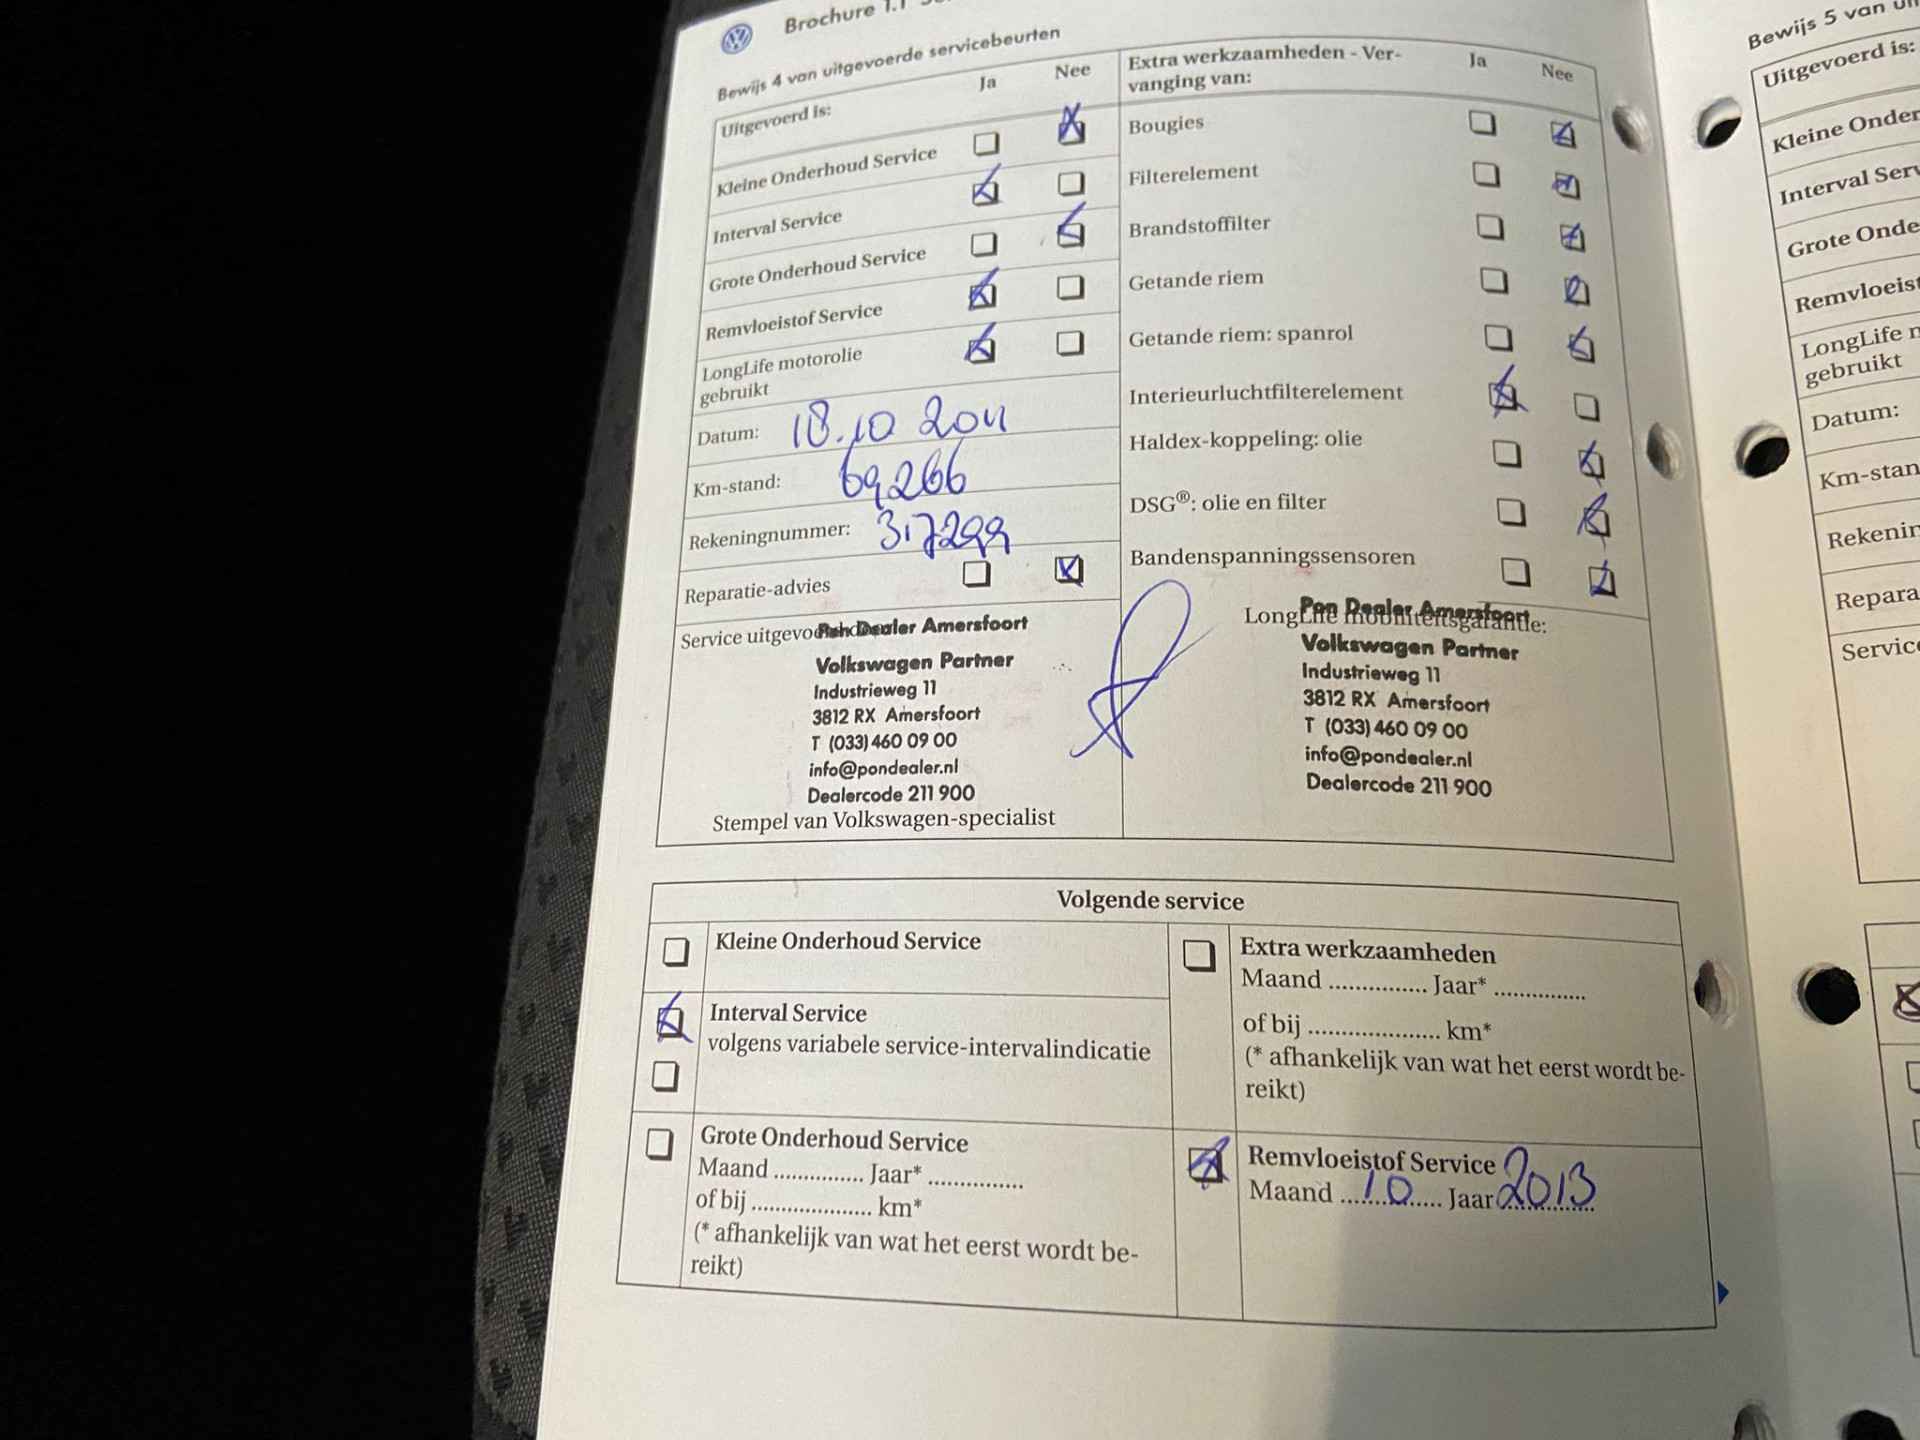 Brochure 1.1
Bewijs 4 van uitgevoerde servicebeurten
Uitgevoerd is: Ja Nee
Kleine Onderhoud Service
Interval Service
Grote Onderhoud Service
Remvloeistof Service
LongLife motorolie
gebruikt
Datum: 18.10 2011
Km-stand: 69266
Rekeningnummer: 317299
Reparatie-advies
Service uitgevoerd door:
Pon Dealer Amersfoort
Volkswagen Partner
Industrieweg 11
3812 RX Amersfoort
T (033) 460 09 00
info@pondealer.nl
Dealercode 211 900
Stempel van Volkswagen-specialist
Extra werkzaamheden - Ver-
vanging van: Ja Nee
Bougies
Filterelement
Brandstoffilter
Getande riem
Getande riem: spanrol
Interieurluchtfilterelement
Haldex-koppeling: olie
DSG®: olie en filter
Bandenspanningssensoren
LongLife mobiliteitsgarantie:
Pon Dealer Amersfoort
Volkswagen Partner
Industrieweg 11
3812 RX Amersfoort
T (033) 460 09 00
info@pondealer.nl
Dealercode 211 900
Volgende service
Kleine Onderhoud Service
Interval Service
volgens variabele service-intervalindicatie
Grote Onderhoud Service
Maand .............. Jaar* ...............
of bij .................... km*
(* afhankelijk van wat het eerst wordt be-
reikt)
Extra werkzaamheden
Maand ............... Jaar* ..............
of bij .................... km*
(* afhankelijk van wat het eerst wordt be-
reikt)
Remvloeistof Service
Maand 10 Jaar 2013
Bewijs 5 van
Uitgevoerd is:
Kleine
Interval
Grote
LongLife
gebruikt
Datum:
Km-stand
Service